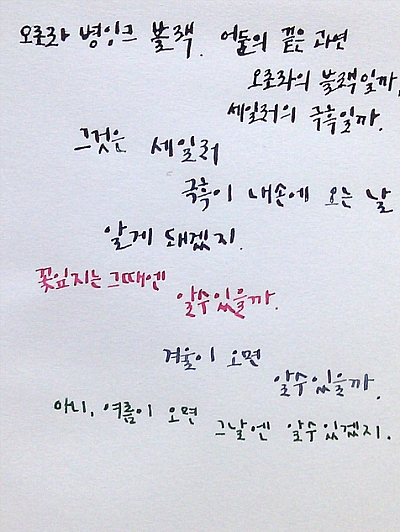 오로라 병잉크 블랙. 어둠의 끝은 과연
오로라의 블랙일까,
세일러의 극흑일까.
그것은 세일러
극흑이 내손에 오는 날
알게 돼겠지.
꽃잎지는 그때엔
알수있을까.
겨울이 오면
알수있을까.
아니, 여름이 오면
그날엔 알수있겠지.